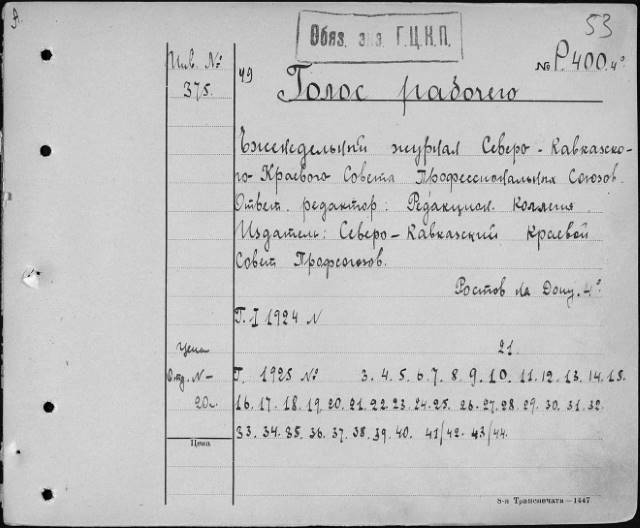 Обяз. экз. Г.Ц.К.П.
53
Инв. №
375.
49
№ Р.400.4°
Голос рабочего
Еженедельный журнал Северо-Кавказско-
го Краевого Совета Профессиональных Союзов.
Ответ. редактор: Редакцион. коллегия.
Издатель: Северо-Кавказский Краевой
Совет Профсоюзов.
Ростов на Дону. 4°.
Г. I 1924 №
21.
Цена
Отд. №-
20к.
Г. 1925 № 3. 4. 5. 6. 7. 8. 9. 10. 11. 12. 13. 14. 15.
16. 17. 18. 19. 20. 21. 22. 23. 24. 25. 26. 27. 28. 29. 30. 31. 32.
33. 34. 35. 36. 37. 38. 39. 40. 41/42. 43/44.
Цена
8-я Транспечать—1447